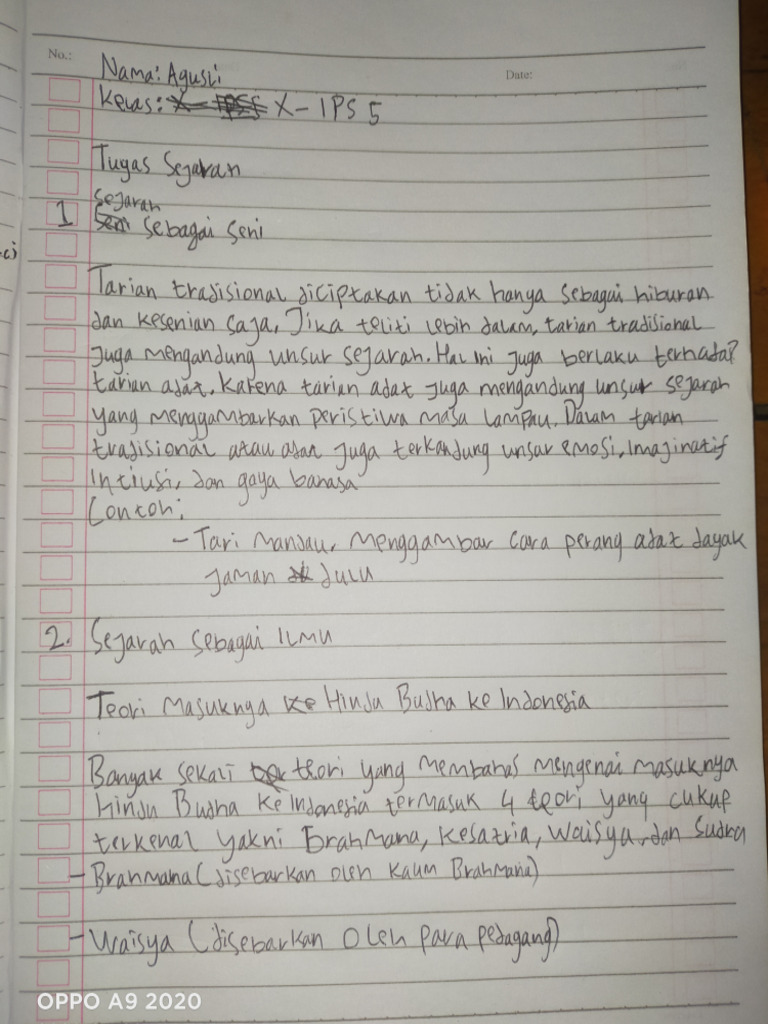 No.:
Date:
Nama: Agusti
Kelas: X - IPS 5
Tugas Sejarah
Sejarah
1 sebagai seni
Tarian tradisional diciptakan tidak hanya sebagai hiburan
dan kesenian saja, Jika teliti lebih dalam, tarian tradisional
juga mengandung unsur sejarah. Hal ini juga berlaku terhadap
tarian adat. Karena tarian adat juga mengandung unsur sejarah
yang menggambarkan peristiwa masa lampau. Dalam tarian
tradisional atau adat juga terkandung unsur emosi, imajinatif
Intiusi, dan gaya bahasa
Contoh:
- Tari Mandau, menggambar cara perang adat dayak
jaman dulu
2. Sejarah sebagai Ilmu
Teori Masuknya Hindu Budha ke Indonesia
Banyak sekali teori yang membahas mengenai masuknya
Hindu Budha ke Indonesia termasuk 4 teori yang cukup
terkenal yakni Brahmana, Kesatria, Waisya, dan Sudra
- Brahmana (disebarkan oleh kaum Brahmana)
- Waisya (disebarkan oleh para pedagang)
OPPO A9 2020